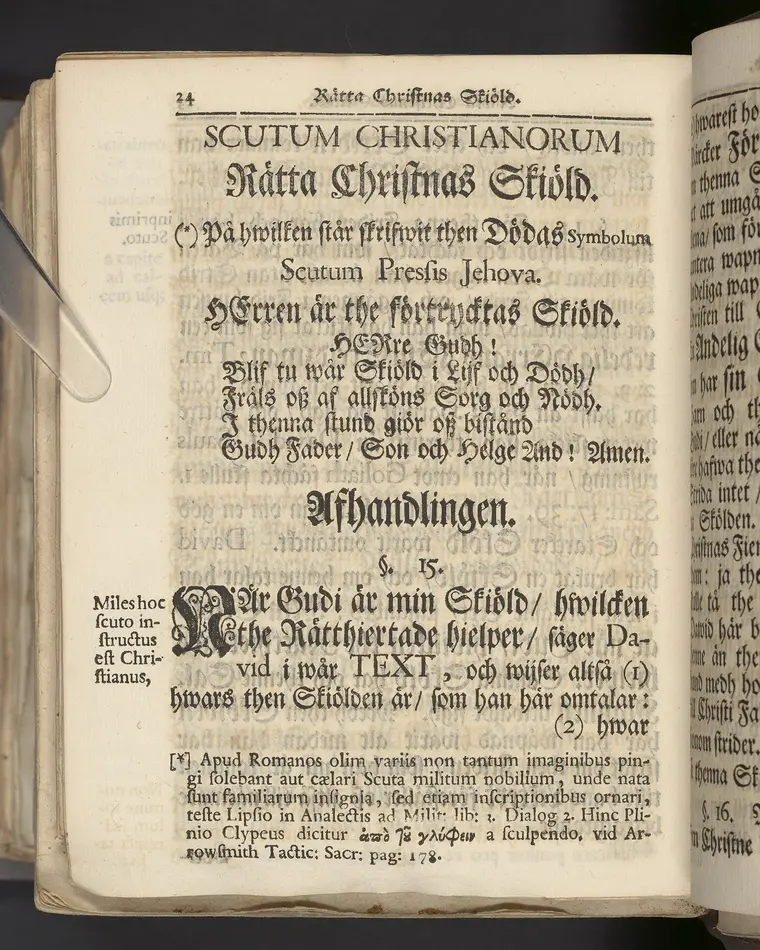 24 Rätta Christnas Skiöld.
SCUTUM CHRISTIANORUM
Rätta Christnas Skiöld.
(*) På hwilken står skrifwit then Dödas Symbolum
Scutum Pressis Jehova.
HErren är the förtrycktas Skiöld.
HERre Gudh!
Blif tu wår Skiöld i Lijf och Dödh/
Fräls oß af allsköns Sorg och Nödh.
I thenna stund giör oß bistånd
Gudh Fader/ Son och Helge And! Amen.
Afhandlingen.
§. 15.
Miles hoc
scuto in-
structus
est Chri-
stianus,
Gudi är min Skiöld/ hwilcken
the Rätthiertade hielper/ säger Da-
vid i wår TEXT, och wijser altså (1)
hwars then Skiölden är/ som han här omtalar:
(2) hwar
[*] Apud Romanos olim variis non tantum imaginibus pin-
gi solebant aut cælari Scuta militum nobilium, unde nata
sunt familiarum insignia, sed etiam inscriptionibus ornari,
teste Lipsio in Analectis ad Milit: lib: 3. Dialog 2. Hinc Pli-
nio Clypeus dicitur ἀπὸ τοῦ γλύφειν a sculpendo, vid Ar-
rowsmith Tactic: Sacr: pag: 178.
hwarest
För
thenna
att umgå
som för
wapn
wap
till
Andelig
har sin
och
eller
hafwa the
intet
Skölden.
ja
tå the
här
än the
medh
Christi
strider.
thenna
§. 16.
Christne